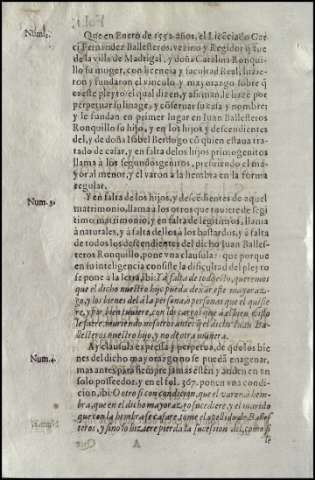 Num. 2.
Que en Enero de 1552 años, el Licẽciado Garci
Fernandez Ballesteros, vezino y Regidor q̃ fue
de la villa de Madrigal, y doña Catalina Ronquillo
su muger, con licencia y facultad Real, hizieron
y fundaron el vinculo y mayorazgo sobre q̃
es este pleyto: el qual dizen, y afirman, le hazẽ por
perpetuar su linage, y cõseruar su casa y nombre:
y le fundan en primer lugar en Iuan Ballesteros
Ronquillo su hijo, y en los hijos y descendientes
del, y de doña Isabel Bertingo cõ quien estaua tratado
de casar, y en falta de los hijos primogenitos
llama à los segundogenitos, prefiriendo el mayor
al menor, y el varon à la hembra en la forma
regular.
Num. 3.
Y en falta de los hijos, y descẽdientes de aquel
matrimonio, llama à los otros que tuuiere de segũdo
matrimonio, y en falta de legitimos, llama
à naturales, y à falta dellos à los bastardos, y à falta
de todos los descendientes del dicho Iuan Ballesteros
Ronquillo, pone vna clausula: que porque
en su inteligencia consiste la dificultad del pleyto
se pone à la letra, ibi: Y à falta de todo esto, queremos
que el dicho nuestro hijo pueda dexar este mayorazgo,
y los bienes del à la persona, ò personas que el quisiere,
y por bien tuuiere, con los cargos que à el bien visto
le fuere, muriendo nosotros antes q̃ el dicho Iuan Ballesteros
nuestro hijo, y no de otra manera.
Num. 4.
Ay clausula expressa y perpetua, de q̃ los bienes
del dicho mayorazgo no se puedã enagenar,
mas antes para siempre jamas estẽn y anden en vn
solo posseedor, y en el fol. 367. ponen vna condicion,
ibi: Otro si con condicion, que el varon ò hembra,
que en el dicho mayorazgo sucediere, y el marido
que con la hembra se casare, tome el apellido de Ballesteros,
y si no lo hiziere pierda la sucession del, como si
A